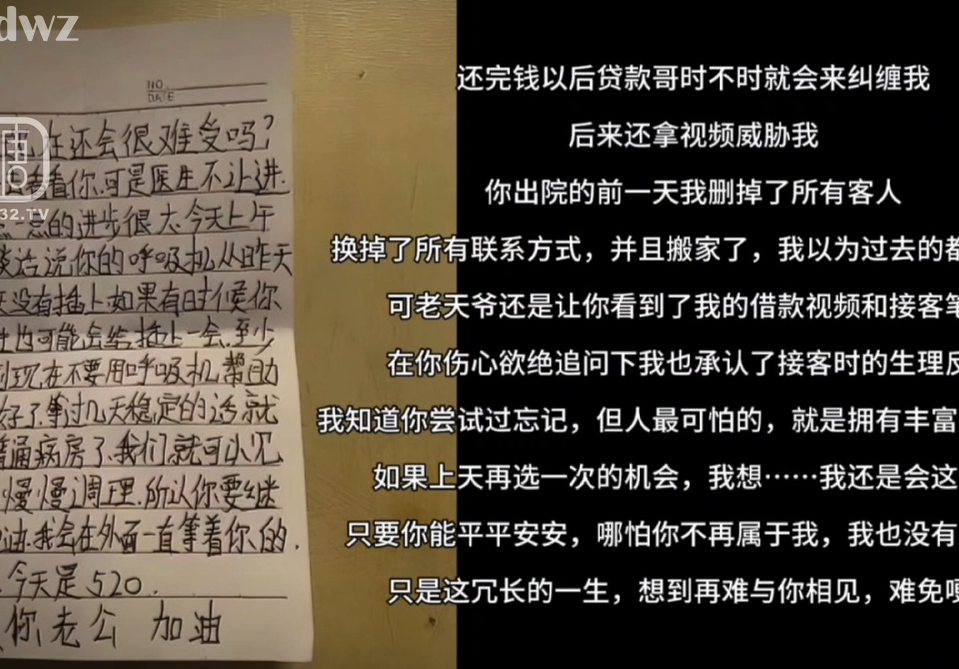 dwz
NO
DATE
在还会很难受吗?
看看你.可是医生不让进.
点一点的进步很大.今天上午
谈话说你的呼吸机从昨天
没有插上.如果有时候你
也可能会给插上一会.至少
到现在不要用呼吸机帮助
好了.等过几天稳定的话就
普通病房了.我们就可以见
慢慢调理.所以你要继
油.我会在外面一直等着你的.
今天是520.
你老公 加油
32.TV
还完钱以后贷款哥时不时就会来纠缠我
后来还拿视频威胁我
你出院的前一天我删掉了所有客人
换掉了所有联系方式，并且搬家了，我以为过去的都
可老天爷还是让你看到了我的借款视频和接客笔
在你伤心欲绝追问下我也承认了接客时的生理反
我知道你尝试过忘记，但人最可怕的，就是拥有丰富
如果上天再选一次的机会，我想……我还是会这
只要你能平平安安，哪怕你不再属于我，我也没有
只是这冗长的一生，想到再难与你相见，难免哽